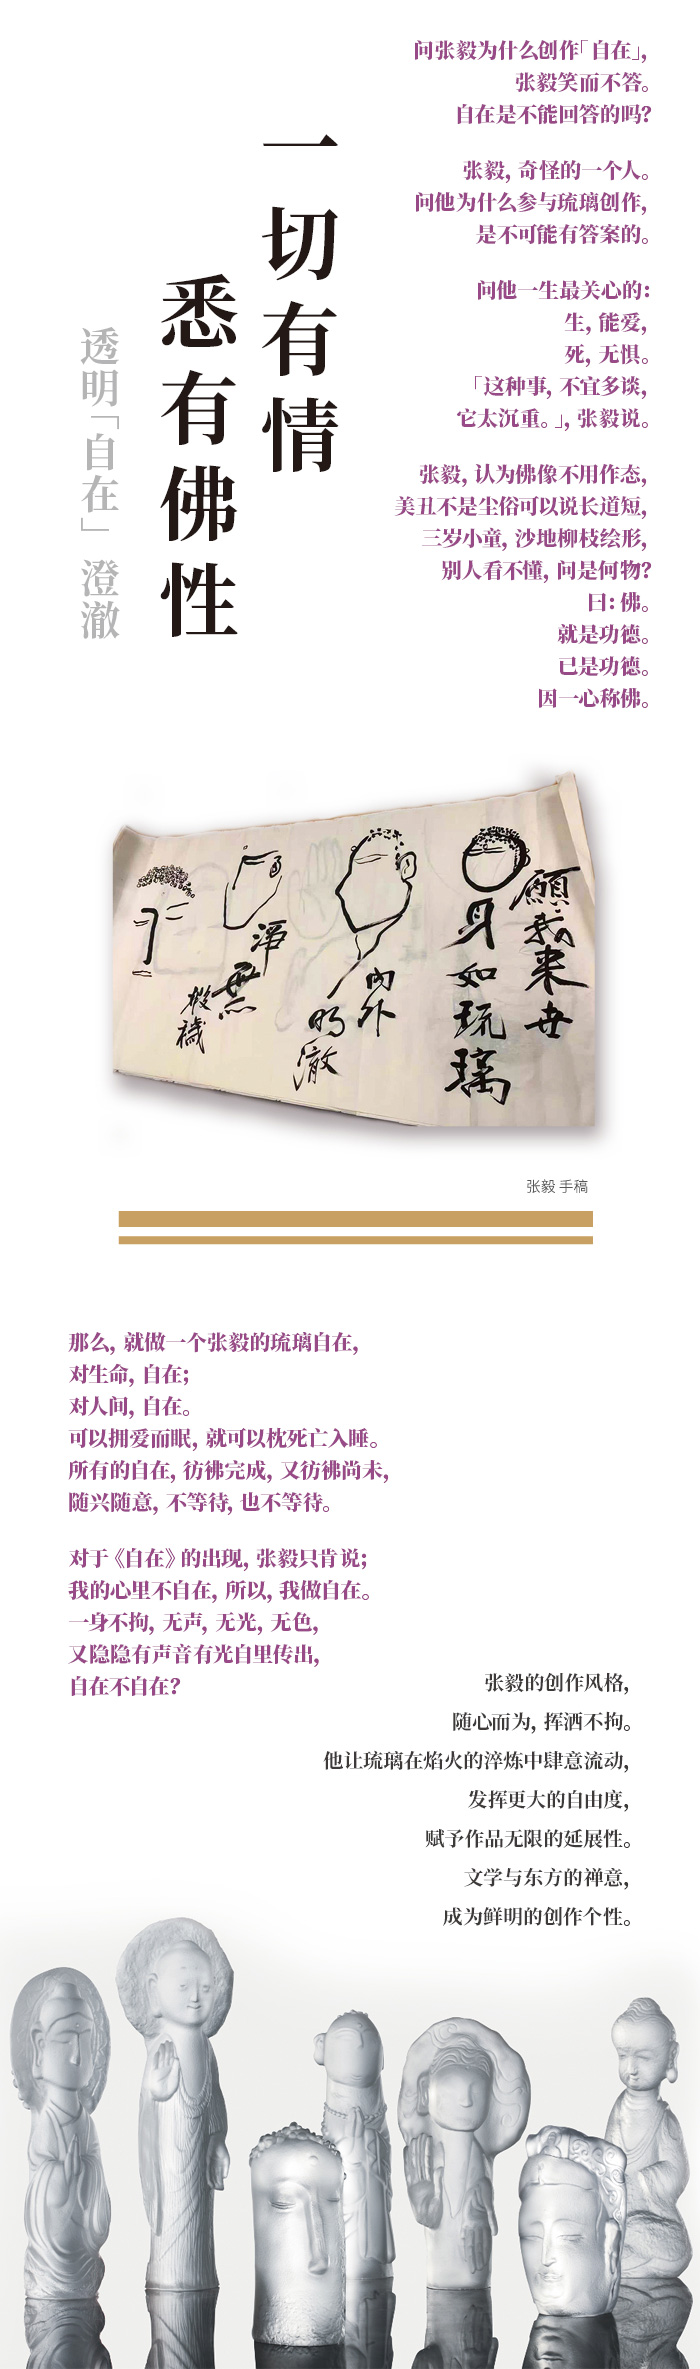 一切有情
悉有佛性
透明「自在」 澄澈
问张毅为什么创作「自在」，
张毅笑而不答。
自在是不能回答的吗？
张毅，奇怪的一个人。
问他为什么参与琉璃创作，
是不可能有答案的。
问他一生最关心的：
生，能爱，
死，无惧。
「这种事，不宜多谈，
它太沉重。」，张毅说。
张毅，认为佛像不用作态，
美丑不是尘俗可以说长道短，
三岁小童，沙地柳枝绘形，
别人看不懂，问是何物？
曰：佛。
就是功德。
已是功德。
因一心称佛。
願我来世
身如琉璃
内外
明澈
淨無
瑕穢
张毅 手稿
那么，就做一个张毅的琉璃自在，
对生命，自在；
对人间，自在。
可以拥爱而眠，就可以枕死亡入睡。
所有的自在，彷彿完成，又彷彿尚未，
随兴随意，不等待，也不等待。
对于《自在》的出现，张毅只肯说；
我的心里不自在，所以，我做自在。
一身不拘，无声，无光，无色，
又隐隐有声音有光自里传出，
自在不自在？
张毅的创作风格，
随心而为，挥洒不拘。
他让琉璃在焰火的淬炼中肆意流动，
发挥更大的自由度，
赋予作品无限的延展性。
文学与东方的禅意，
成为鲜明的创作个性。